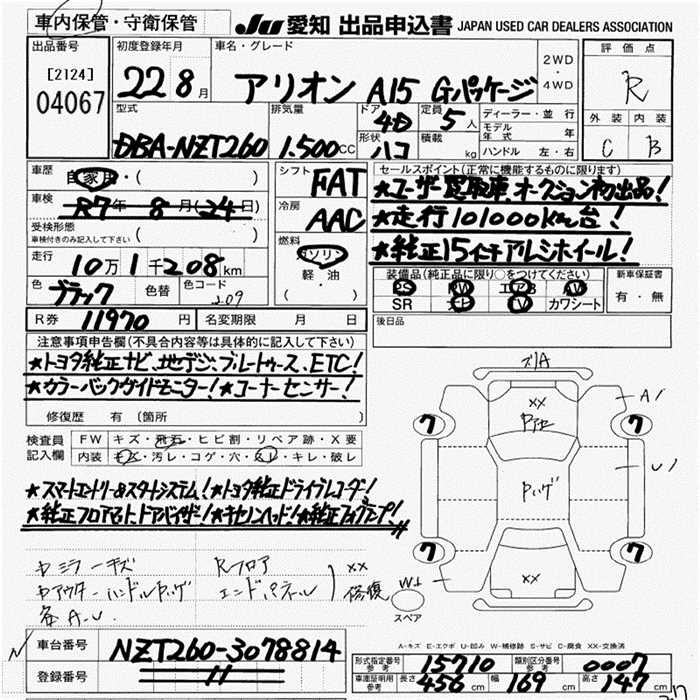 車内保管・守衛保管
JU 愛知 出品申込書 JAPAN USED CAR DEALERS ASSOCIATION
出品番号
[2124]
04067
初度登録年月
22 8月
車名・グレード
アリオン A15 Gパッケージ
2WD
・
4WD
評価点
R
外装 内装
C B
型式
DBA-NZT260
排気量
1.500cc
ドア
4D
形状
ハコ
定員
5人
積載
kg
ディーラー・並行
モデル年式 年
ハンドル 左・右
車歴
自家用・( )
車検
R7年 8月(24日)
受検形態
車検付きのみ記入して下さい ( )
走行
10万1千208km
色
ブラック
色替
色コード
209
シフト
FAT
冷房
AAC
燃料
ガソリン
軽・油
( )
セールスポイント(正常に機能するものに限ります)
★ユーザー買取車、オークション初出品!
★走行101000km台!
★純正15インチアルミホイール!
装備品(純正品に限り○をつけてください)
PS PW エアB AW
SR ナビ TV カワシート
新車保証書
有・無
後日品
R券 11970円
名変期限 月 日
注意事項申告欄(不具合内容等は具体的に記入して下さい)
★トヨタ純正ナビ、地デジ、ブルートゥース、ETC!
★カラーバックガイドモニター!★コーナーセンサー!
修復歴 有 (箇所 )
検査員
記入欄
FW キズ・飛石・ヒビ割・リペア跡・X要
内装 キズ・汚レ・コゲ・穴・スレ・キレ・破レ
★スマートエントリー&スタートシステム!★トヨタ純正ドライブレコーダー!
★純正フロアマット、ドアバイザー!★キセノンヘッド!★純正フォグランプ!
Rフロア
エンドパネル
XX
修復
各A.U.
ズリA
XX
A1
U1
7
7
7
7
XX
W
スペア
車台番号
NZT260-3078814
登録番号
〃
A-キズ E-エクボ U-凹み W-補修跡 S-サビ C-腐食 XX-交換済
形式指定番号
参考
15710
類別区分番号
参考
0007
車庫証明用
参考
長さ 456cm 幅 169cm 高さ 147cm